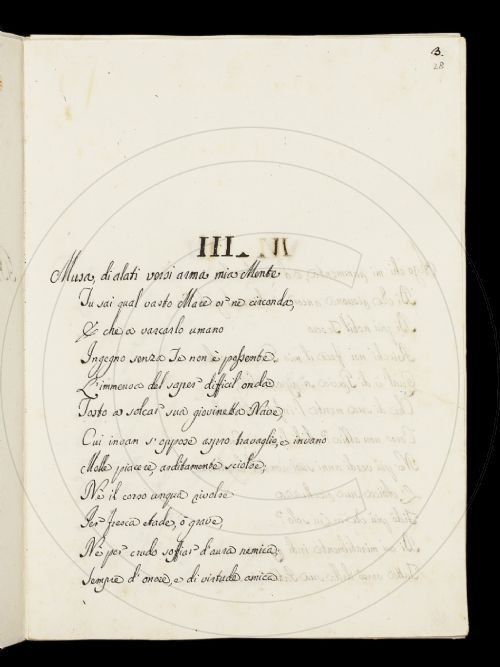 3.
28
III.
Musa, di alati versi arma mia Mente
Tu sai qual vasto Mare or ne circonda,
E che a varcarlo umano
Ingegno senza Te non è possente.
L'immensa del saper difficil onda
Tosto a solcar sua giovinetta Nave
Cui invan s'oppose aspro travaglio, e invano
Molle piacere, arditamente sciolse;
Nè il corso unqua rivolse
Per fresca etade, o grave,
Nè per crudo soffiar d'aura nemica;
Sempre d'onore, e di virtude amica